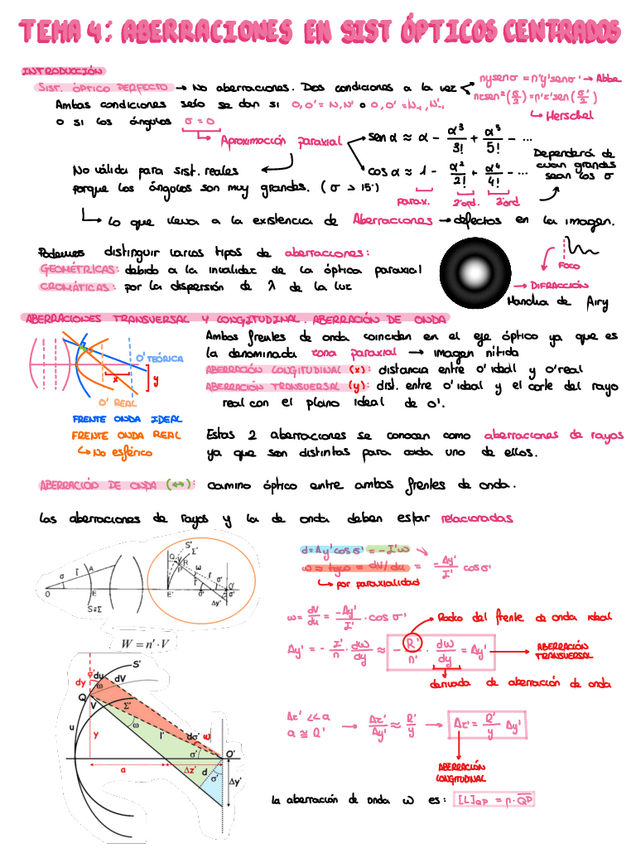 TEMA 4: ABERRACIONES EN SIST ÓPTICOS CENTRADOS
INTRODUCCIÓN
SIST. ÓPTICO PERFECTO → No aberraciones. Dos condiciones a la vez
ny sen σ = n'y' sen σ' → Abbe
Ambas condiciones solo se dan si O,O' = N,N' o O,O' =
→ Herschel
o si los ángulos σ = 0
→ Aproximación paraxial
sen α ≈ α - α³/3! + α⁵/5! - ...
cos α ≈ 1 - α²/2! + α⁴/4! - ...
Dependerá de
cuan grandes
sean los σ
No válida para sist. reales
porque los ángulos son muy grandes. (σ > 15°)
parax. 2ºord. 3ºord
→ lo que lleva a la existencia de Aberraciones → defectos en la imagen.
Podemos distinguir varios tipos de aberraciones:
GEOMÉTRICAS: debido a la invalidez de la óptica paraxial
CROMÁTICAS: por la dispersión de λ de la luz
Foco
→ DIFRACCIÓN
Mancha de Airy
ABERRACIONES TRANSVERSAL Y LONGITUDINAL. ABERRACIÓN DE ONDA
Ambos frentes de onda coinciden en el eje óptico ya que es
la denominada zona paraxial → imagen nítida
ABERRACIÓN LONGITUDINAL (x): distancia entre o'ideal y o'real
ABERRACIÓN TRANSVERSAL (y): dist. entre o'ideal y el corte del rayo
real con el plano ideal de o'.
O' TEÓRICA
x
y
O' REAL
FRENTE ONDA IDEAL
FRENTE ONDA REAL
→ No esférico
Estas 2 aberraciones se conocen como aberraciones de rayos
ya que son distintas para cada uno de ellos.
ABERRACIÓN DE ONDA (↔): camino óptico entre ambos frentes de onda.
Las aberraciones de rayos y la de onda deben estar relacionadas
d = Δy' cos σ' = -I'ω
ω ≈ tg ω = dV/du = -Δy'/I' cos σ'
→ por paraxialidad
ω = dV/du = -Δy'/I' · cos σ'
→ Radio del frente de onda ideal
Δy' = - I'/n · dW/dy ≈ - R'/n' · dW/dy = Δy' → ABERRACIÓN TRANSVERSAL
derivada de aberración de onda
W = n' · V
Δz' << a
a ≅ R'
→ Δz'/Δy' ≈ R'/y → Δz' = R'/y Δy'
ABERRACIÓN
LONGITUDINAL
la aberración de onda ω es: [L]QP = n·QP